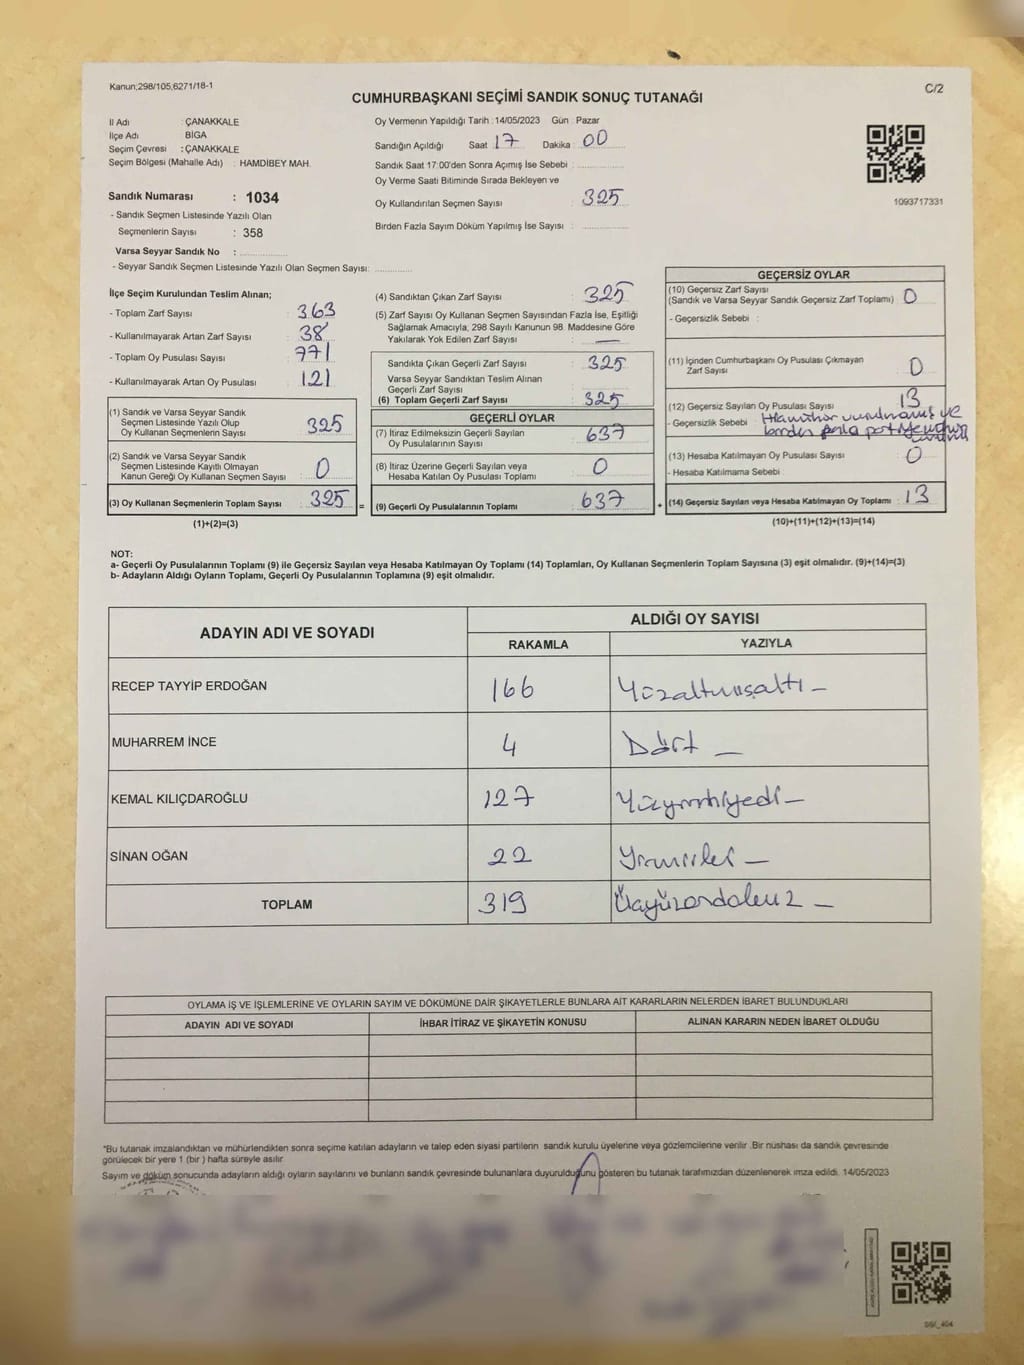 Kanun;298/105,6271/18-1
C/2
CUMHURBAŞKANI SEÇİMİ SANDIK SONUÇ TUTANAĞI
İl Adı : ÇANAKKALE
İlçe Adı BİGA
Seçim Çevresi : ÇANAKKALE
Seçim Bölgesi (Mahalle Adı) : HAMDİBEY MAH.
Sandık Numarası : 1034
- Sandık Seçmen Listesinde Yazılı Olan
Seçmenlerin Sayısı : 358
Varsa Seyyar Sandık No :
- Seyyar Sandık Seçmen Listesinde Yazılı Olan Seçmen Sayısı:
Oy Vermenin Yapıldığı Tarih : 14/05/2023 Gün : Pazar
Sandığın Açıldığı Saat 17 Dakika : 00
Sandık Saat 17:00'den Sonra Açımış İse Sebebi :
Oy Verme Saati Bitiminde Sırada Bekleyen ve
Oy Kullandırılan Seçmen Sayısı : 325
Birden Fazla Sayım Döküm Yapılmış İse Sayısı :
1093717331
İlçe Seçim Kurulundan Teslim Alınan;
- Toplam Zarf Sayısı : 363
- Kullanılmayarak Artan Zarf Sayısı : 38
- Toplam Oy Pusulası Sayısı : 771
- Kullanılmayarak Artan Oy Pusulası : 121
(1) Sandık ve Varsa Seyyar Sandık
Seçmen Listesinde Yazılı Olup
Oy Kullanan Seçmenlerin Sayısı : 325
(2) Sandık ve Varsa Seyyar Sandık
Seçmen Listesinde Kayıtlı Olmayan
Kanun Gereği Oy Kullanan Seçmen Sayısı : 0
(3) Oy Kullanan Seçmenlerin Toplam Sayısı : 325
(1)+(2)=(3)
=
(4) Sandıktan Çıkan Zarf Sayısı : 325
(5) Zarf Sayısı Oy Kullanan Seçmen Sayısından Fazla İse, Eşitliği
Sağlamak Amacıyla, 298 Sayılı Kanunun 98. Maddesine Göre
Yakılarak Yok Edilen Zarf Sayısı : —
Sandıkta Çıkan Geçerli Zarf Sayısı : 325
Varsa Seyyar Sandıktan Teslim Alınan
Geçerli Zarf Sayısı :
(6) Toplam Geçerli Zarf Sayısı : 325
GEÇERLİ OYLAR
(7) İtiraz Edilmeksizin Geçerli Sayılan
Oy Pusulalarının Sayısı : 637
(8) İtiraz Üzerine Geçerli Sayılan veya
Hesaba Katılan Oy Pusulası Toplamı : 0
(9) Geçerli Oy Pusulalarının Toplamı : 637
+
GEÇERSİZ OYLAR
(10) Geçersiz Zarf Sayısı
(Sandık ve Varsa Seyyar Sandık Geçersiz Zarf Toplamı) : 0
- Geçersizlik Sebebi :
(11) İçinden Cumhurbaşkanı Oy Pusulası Çıkmayan
Zarf Sayısı : 0
(12) Geçersiz Sayılan Oy Pusulası Sayısı : 13
- Geçersizlik Sebebi : ve
birden fazla
(13) Hesaba Katılmayan Oy Pusulası Sayısı : 0
- Hesaba Katılmama Sebebi
(14) Geçersiz Sayılan veya Hesaba Katılmayan Oy Toplamı : 13
(10)+(11)+(12)+(13)=(14)
NOT:
a- Geçerli Oy Pusulalarının Toplamı (9) ile Geçersiz Sayılan veya Hesaba Katılmayan Oy Toplamı (14) Toplamları, Oy Kullanan Seçmenlerin Toplam Sayısına (3) eşit olmalıdır. (9)+(14)=(3)
b- Adayların Aldığı Oyların Toplamı, Geçerli Oy Pusulalarının Toplamına (9) eşit olmalıdır.
ADAYIN ADI VE SOYADI
ALDIĞI OY SAYISI
RAKAMLA YAZIYLA
RECEP TAYYİP ERDOĞAN 166 Yüzaltmışaltı –
MUHARREM İNCE 4 Dört –
KEMAL KILIÇDAROĞLU 127 Yüzyirmiyedi –
SİNAN OĞAN 22 Yirmiiki –
TOPLAM 319 Üçyüzondokuz –
OYLAMA İŞ VE İŞLEMLERİNE VE OYLARIN SAYIM VE DÖKÜMÜNE DAİR ŞİKAYETLERLE BUNLARA AİT KARARLARIN NELERDEN İBARET BULUNDUKLARI
ADAYIN ADI VE SOYADI İHBAR İTİRAZ VE ŞİKAYETİN KONUSU ALINAN KARARIN NEDEN İBARET OLDUĞU
*Bu tutanak imzalandıktan ve mühürlendikten sonra seçime katılan adayların ve talep eden siyasi partilerin sandık kurulu üyelerine veya gözlemcilerine verilir .Bir nüshası da sandık çevresinde
görülecek bir yere 1 (bir ) hafta süreyle asılır.
Sayım ve döküm sonucunda adayların aldığı oyların sayılarını ve bunların sandık çevresinde bulunanlara duyurulduğunu gösteren bu tutanak tarafımızdan düzenlenerek imza edildi. 14/05/2023